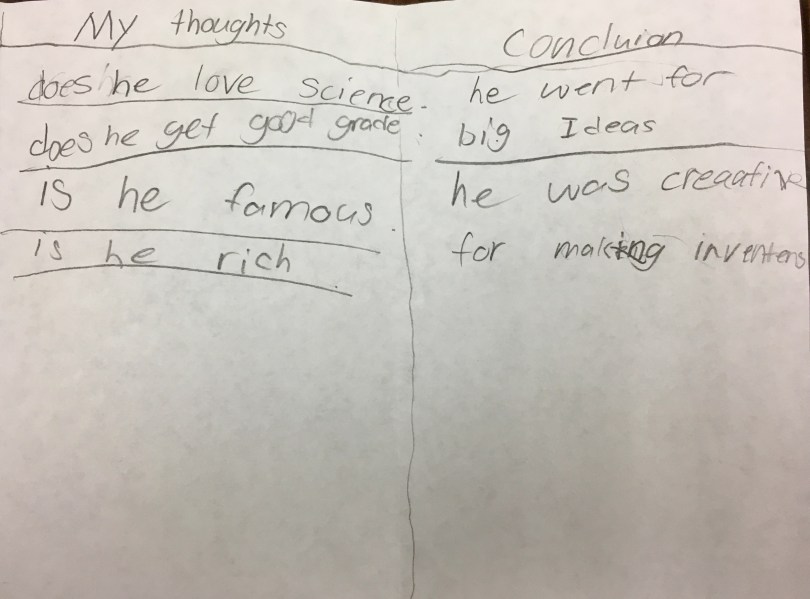 My thoughts
does he love science.
does he get good grade.
IS he famous.
is he rich
Concluion
he went for
big Ideas
he was creaative
for making inventens